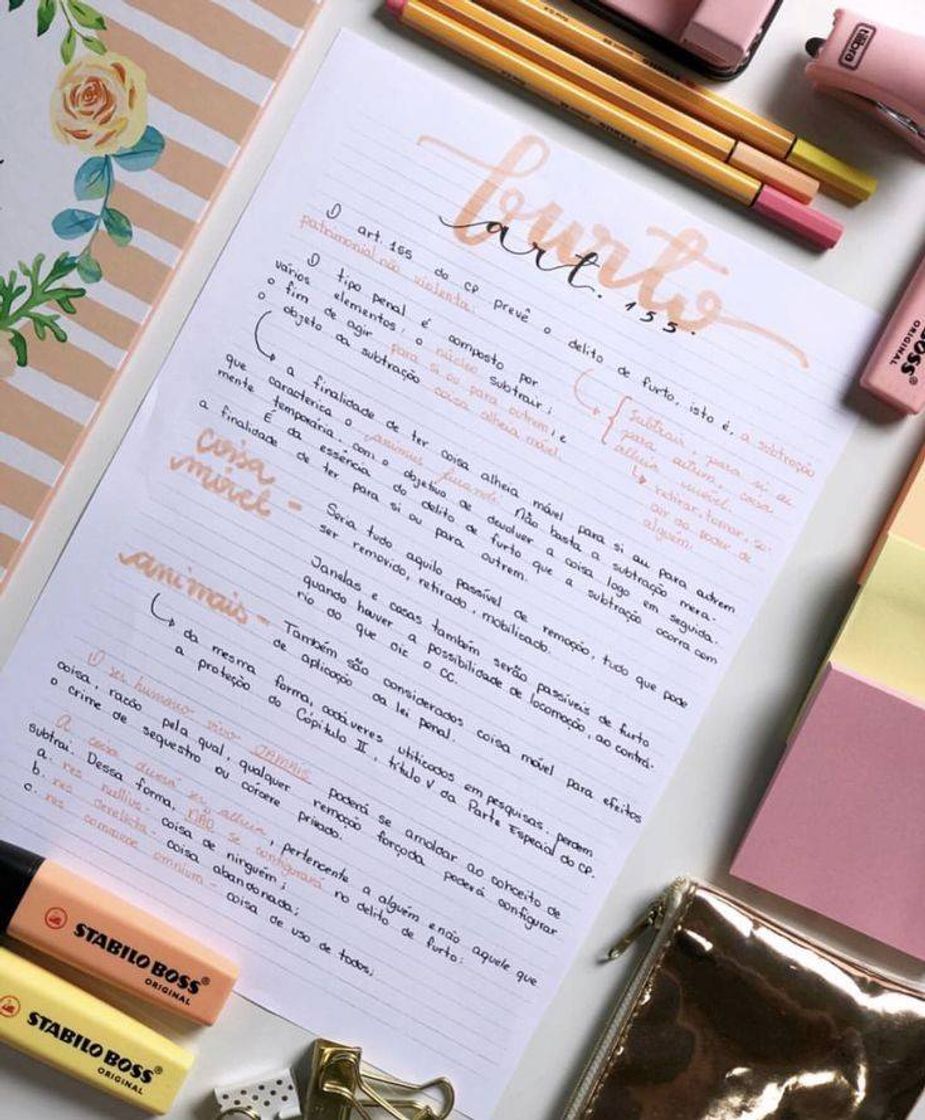 furto
art. 155.
O art. 155 do CP prevê o delito de furto, isto é, a subtração
patrimonial não violenta.
O tipo penal é composto por
vários elementos: o núcleo subtrair;
o fim de agir para si ou para outrem; e
o objeto da subtração coisa alheia móvel
Subtrair, para si ou
para outrem, coisa
alheia móvel.
retirar, tomar, su-
air do poder de
alguém.
a finalidade de ter coisa alheia móvel para si ou para outrem
que caracteriza o animus furandi. Não basta a subtração mera-
mente temporária, com o objetivo de devolver a coisa logo em seguida.
É da essência do delito de furto que a subtração ocorra com
a finalidade de ter para si ou para outrem.
coisa
móvel - Seria tudo aquilo passível de remoção, tudo que pode
ser removido, retirado, mobilizado.
Janelas e casas também serão passíveis de furto
quando houver a possibilidade de locomoção, ao contrá-
rio do que diz o CC.
animais - Também são considerados coisa móvel para efeitos
de aplicação da lei penal.
da mesma forma, cadáveres utilizados em pesquisas. perdem
a proteção do Capítulo II, título V da Parte Especial do CP.
O ser humano vivo JAMAIS poderá se amoldar ao conceito de
coisa, razão pela qual, qualquer remoção forçada poderá configurar
o crime de sequestro ou cárcere privado.
A coisa deverá ser alheia, pertencente a alguém e não aquele que
subtrai. Dessa forma, NÃO se configurará no delito de furto:
a. res nullius - coisa de ninguém;
b. res derelicta - coisa abandonada;
c. res commune omnium - coisa de uso de todos;
STABILO BOSS®
ORIGINAL
STABILO BOSS®
ORIGINAL
BOSS
ORIGINAL
tilibra